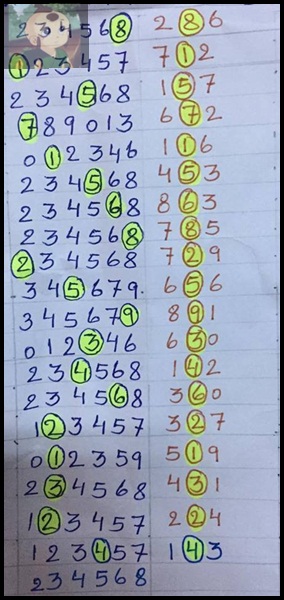 2 3 4 5 6 8 2 8 6
1 2 3 4 5 7 7 1 2
2 3 4 5 6 8 1 5 7
7 8 9 0 1 3 6 7 2
0 1 2 3 4 6 1 1 6
2 3 4 5 6 8 4 5 3
2 3 4 5 6 8 8 6 3
2 3 4 5 6 8 7 8 5
2 3 4 5 6 8 7 2 9
3 4 5 6 7 9 6 5 6
3 4 5 6 7 9 8 9 1
0 1 2 3 4 6 6 3 0
2 3 4 5 6 8 1 4 2
2 3 4 5 6 8 3 6 0
1 2 3 4 5 7 3 2 7
0 1 2 3 5 9 5 1 9
2 3 4 5 6 8 4 3 1
1 2 3 4 5 7 2 2 4
1 2 3 4 5 7 1 4 3
2 3 4 5 6 8